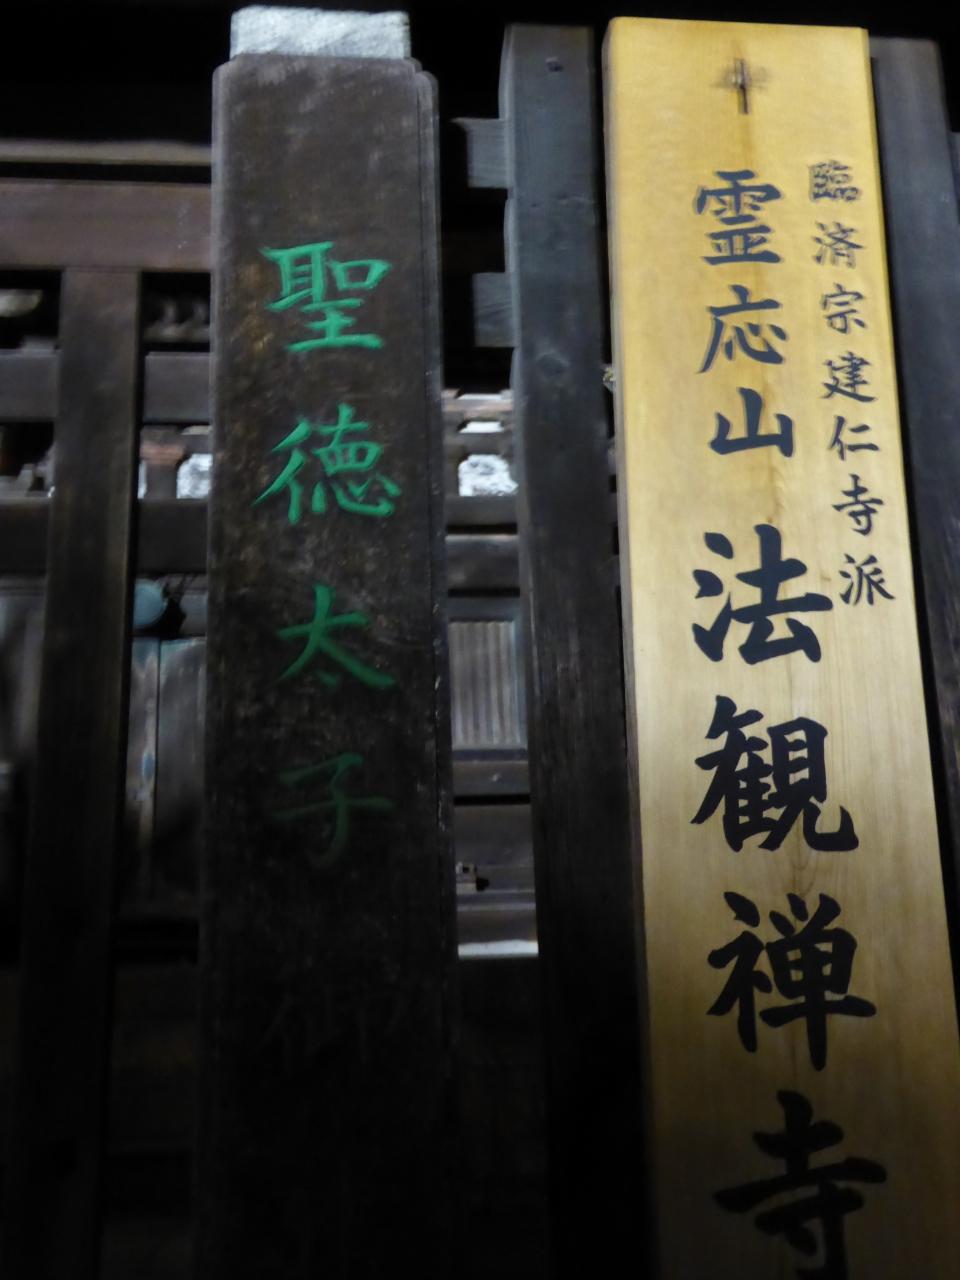 臨済宗建仁寺派
霊応山 法観禅寺
聖徳太子御